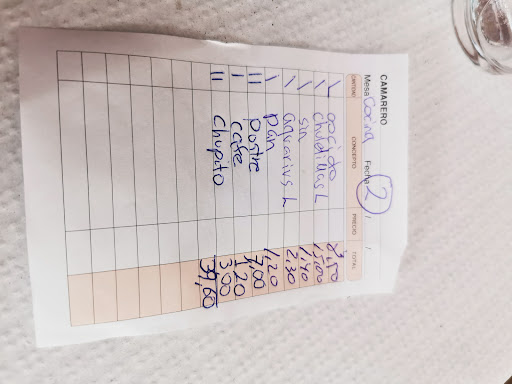 CAMARERO
Mesa Cocina Fecha 2 / /
CONCEPTO PRECIO TOTAL
cocido
chuletillas L 15,00
sin 1,40
aquarius L 2,30
I pan 1,20
II postre 7,00
I cafe 1,20
II chupito 3,00
39,60